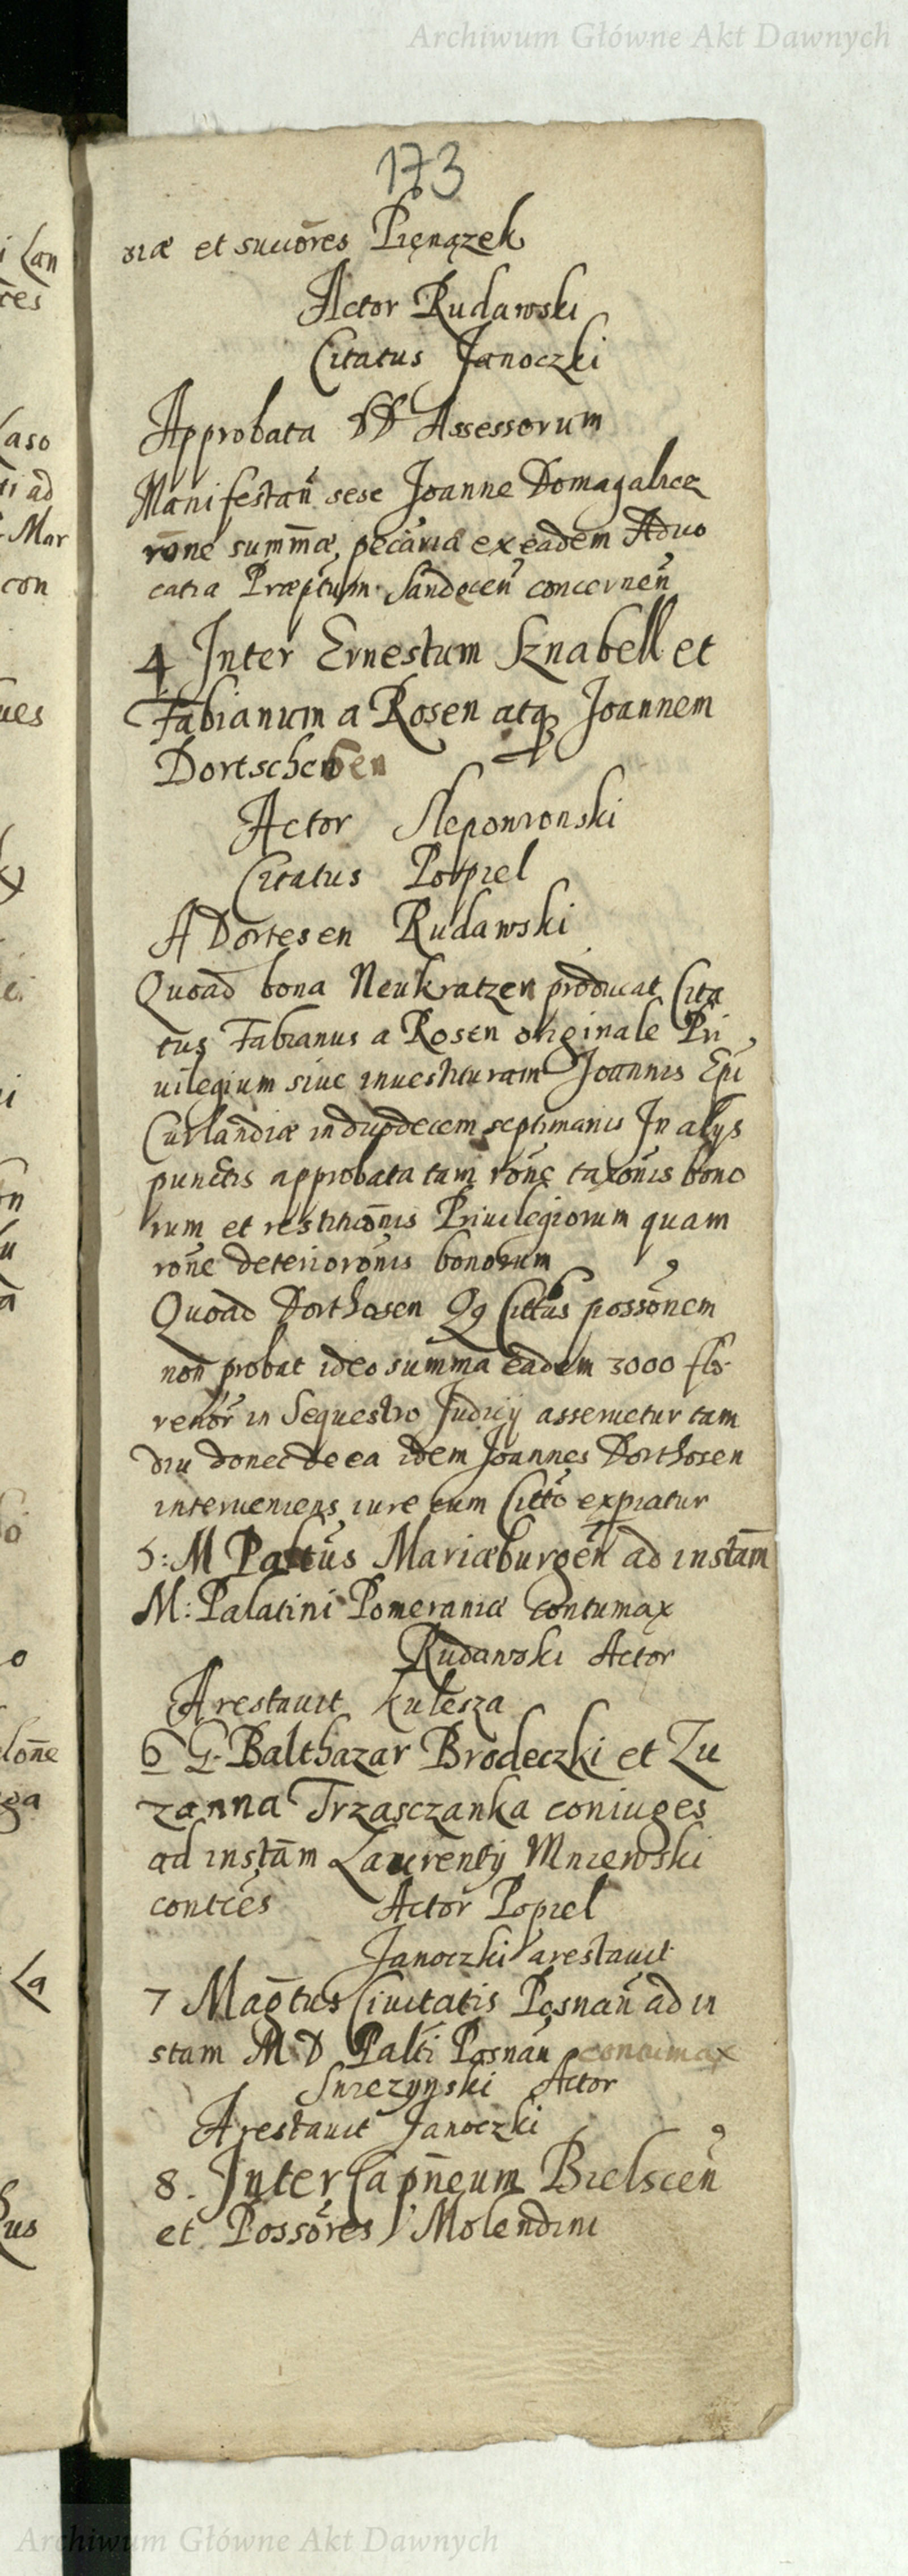 Archiwum Główne Akt Dawnych
173
riæ et succōres Pieniązek
Actor Rudawski
Citatus Janoczki
Approbata DD Assessorum
Manifestan̄ sese Joanne Domagalicz
rōne summæ pecāriæ ex eadem Aduo
catia Præptum Sandecen̄ concernen̄
4 Inter Ernestum Sznabell et
Fabianum a Rosen atq Joannem
Dortschesen
Actor Sleponronski
Citatus Popiel
A Dortesen Rudawski
Quoad bona Neukratzen producat Cita
tus Fabianus a Rosen originale Pri
uilegium siue inuestituram Joannis Epi
Curlandiæ in duodecem septimanis In alijs
punctis approbata tam rōne taxōnis bono
rum et restituōnis Priuilegiorum quam
rōne deteriorōnis bonorum
Quoad Dorthosen Qq Cittus possōnem
non probat ideo summa eadem 3000 flo
renōr in Sequestro Judicij asseruetur tam
diu donec de ea idem Joannes Dorthosen
interueniens iure cum Citto expiatur
5: M Paltus Mariæburgen̄ ad instām
M: Palatini Pomeraniæ contumax
Rudawski Actor
Arestauit Kulesza
6 G. Balthazar Brodeczki et Zu
zanna Trzasczanka coniuges
ad instām Laurentij Mniewski
contces Actor Popiel
Janoczki arestauit
7 Magtus Ciuitatis Posnan̄ ad in
stam M D Palti Posnan̄ contumax
Snrezynski Actor
Arestauit Janoczki
8. Inter Capn̄eum Bielscen̄
et Possōres Molendini
i Lan
ces
aso
ti ad
Mar
con
ues
lon̄e
ga
La
us
Archiwum Główne Akt Dawnych